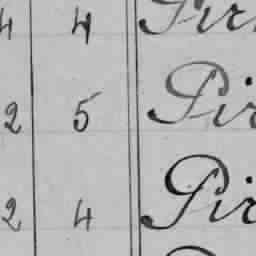 4 4 Pir
2 5 Pir
2 4 Pir